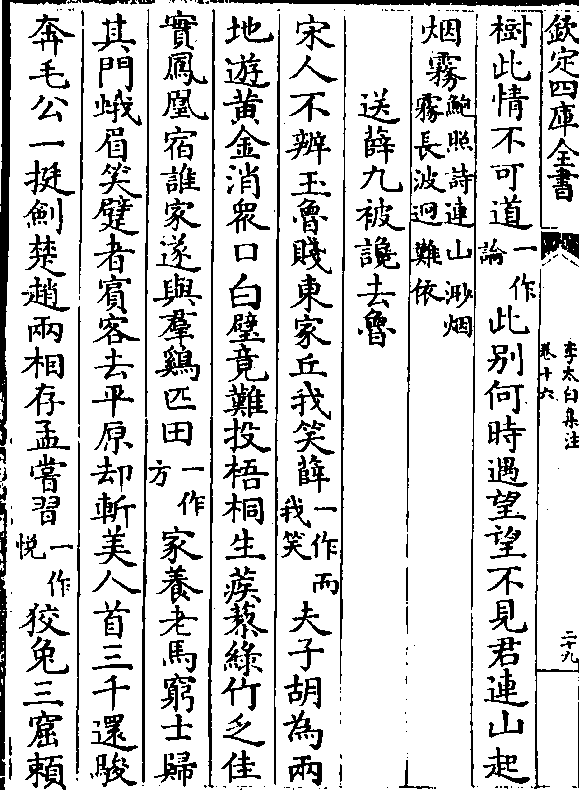 欽定四庫全書
李太白集注
卷十六
二十九
樹此情不可道一作論此别何時遇望望不見君連山起
烟霧鮑照詩連山渺烟霧長波迥難依
送薛九被讒去魯
宋人不辨玉魯賤東家丘我笑薛一作而我笑夫子胡為兩
地遊黄金消衆口白璧竟難投梧桐生蒺藜綠竹乏佳
實鳳凰宿誰家遂與羣鷄匹田一作方家養老馬窮士歸
其門蛾眉笑躄者賓客去平原却斬美人首三千還駿
奔毛公一挺劍楚趙兩相存孟嘗習一作悦狡兔三窟賴